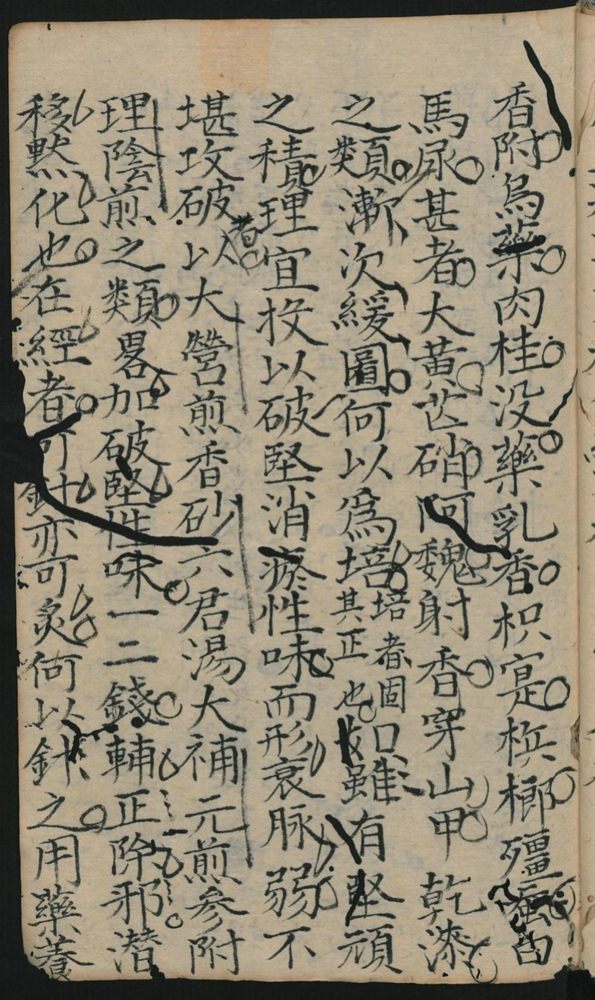 香附烏藥肉桂没藥乳香枳寔梹榔殭蚕白
馬尿甚者大黄芒硝阿魏射香穿山甲乾漆
之類漸次緩圖何以爲培培者固其正也故雖有堅頑
之積理宜投以破堅消瘀性味而形衰脉弱不
堪攻破者以大營煎香砂六君湯大補元煎参附
理陰煎之類畧加破堅性味一二錢輔正除邪潜
移黙化也在經者可針亦可炙何以針之用藥養